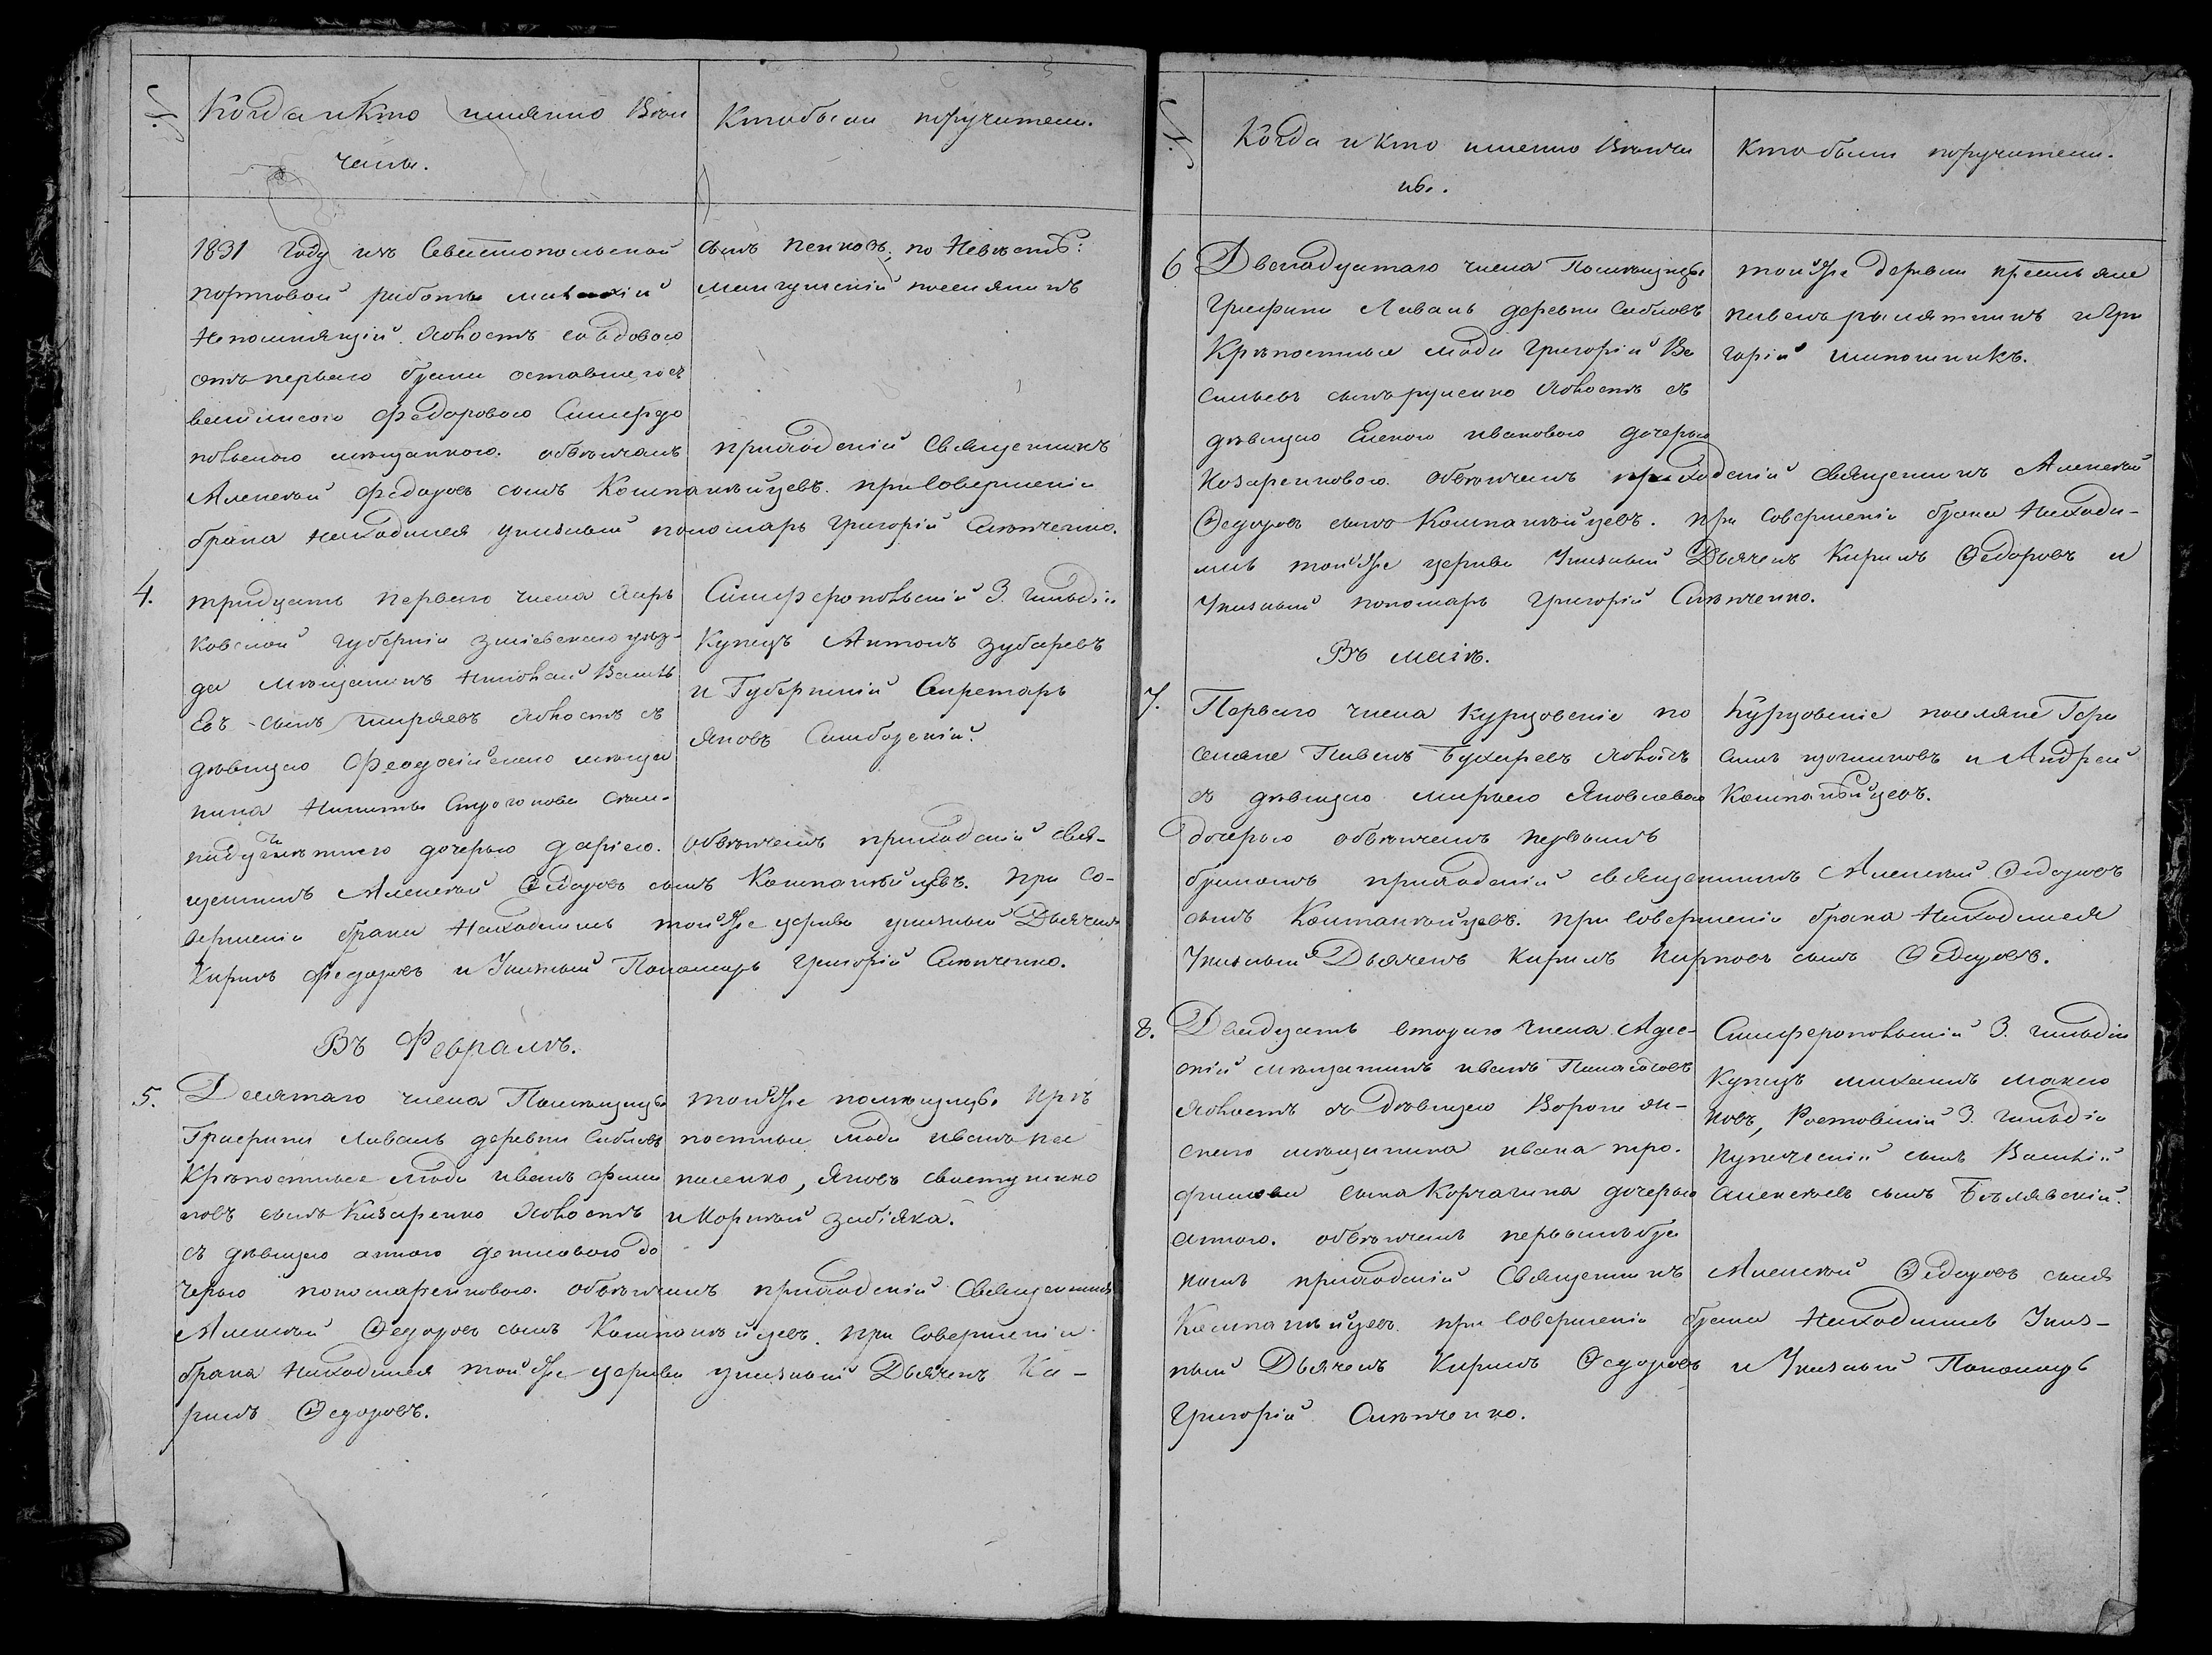 №
Когда и кто имянно вѣн
чаны.
Кто были поручители.
1831 году изъ Севастопольской
портовой работы
Непомнящій холостъ со вдовою
отъ перваго брака оставшегося
Федоровою Симферо
польскою мѣщанкою. обвѣнчалъ приходскій Священникъ
Алексѣй Федоровъ сынъ Компанѣйцевъ. при Совершеніи
брака Находился указный пономарь Григорій Слѣпченко.
сынъ пенковъ, по Невѣстѣ:
Мангушскій поселянинъ
4.
тридцать перваго числа Харь
ковской губерніи зміевскаго уѣз-
да мѣщанинъ Николай Василь
евъ сынъ ширяевъ холостъ съ
дѣвицею Феодосійскаго мѣща
нина Никиты
дочерью даріею. обвѣнчалъ приходскій свя-
щенникъ Алексѣй Ѳедоровъ сынъ Компанѣйцевъ. При со-
вершеніи брака Находились той же церкви указный Дьячекъ
Кирилъ Федоровъ и Указный Пономарь Григорій Слѣпченко.
Симферопольскій 3. гильдіи
Купецъ Антонъ зубаревъ
и Губернскій Секретарь
Яковъ Самборскій.
Въ Февралѣ.
5.
Десятаго числа Помѣщицы
Графини Лаваль деревни Сабловъ
Крѣпостные люди иванъ Фили
повъ сынъ Казаренко холостъ
съ дѣвицею анною денисовою до
черью пономаренковою. обвѣнчалъ приходскій Священникъ
Алексѣй Ѳедоровъ сынъ Компанѣйцевъ. при Совершеніи
брака Находился той же церкви указный Дьячекъ Ки-
рилъ Ѳедоровъ.
той же помѣщицы крѣ
постные люди иванъ па
насенко, Яковъ свистуненко
и Корнѣй забіяка.
№
Когда и кто именно вѣнча
ны.
Кто были поручители.
6
Двенадцатаго числа Помѣщицы
Графини Лаваль деревни Сабловъ
Крѣпостные люди Григорій Ва
сильевъ сынъ руденко холостъ съ
дѣвицею Еленою ивановою дочерью
Козаренковою. обвѣнчалъ приходскій Священникъ Алексѣй
Ѳедоровъ сынъ Компанѣйцевъ. при Совершеніи брака Находи-
лись той же церкви Указный Дьячекъ Кирилъ Ѳедоровъ и
Указный пономарь Григорій Слѣпченко.
той же деревни крестьяне
павелъ рымятникъ и Гри
горій шапошникъ.
Въ маіѣ.
7.
Перваго числа Курцовскіе по
селяне Павелъ Бухаревъ холостъ
съ дѣвицею марьею Яковлевою
дочерью обвѣнчалъ первымъ
бракомъ приходскій священникъ Алексѣй Ѳедоровъ
сынъ Компанѣйцевъ. при Совершеніи брака Находился
Указный Дьячекъ Кирилъ Карповъ сынъ Ѳедоровъ.
Курцовскіе поселяне Гера
симъ и Андрей
Компанѣйцевъ.
8.
Двадцать втораго числа Адес-
скій мѣщанинъ иванъ Панасовъ
холостъ съ дѣвицею Вороне ж-
скаго мѣщанина ивана тро-
фимова сына Корчагина дочерью
анною. обвѣнчалъ первымъ бра
комъ приходскій Священникъ Алексѣй Ѳедоровъ сынъ
Компанѣйцевъ. при Совершеніи брака Находились Указ-
ный Дьячекъ Кирилъ Ѳедоровъ и Указный Пономарь
Григорій Слѣпченко.
Симферопольскій 3. гильдіи
Купецъ михаилъ макси
мовъ, Ростовскій 3. гильдіи
Купеческій сынъ Василій
алексѣевъ сынъ Бѣлявскій.